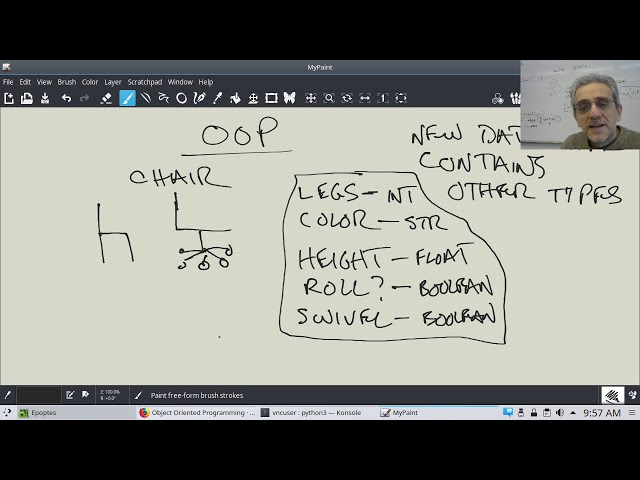 MyPaint
File Edit View Brush Color Layer Scratchpad Window Help
OOP
NEW DAT
CONTAINS
OTHER TYPES
CHAIR
LEGS - INT
COLOR - STR
HEIGHT - FLOAT
ROLL? - BOOLEAN
SWIVEL - BOOLEAN
Z: 100.0%
R: +0.0°
Paint free-form brush strokes
Epoptes
Object Oriented Programming - ...
vncuser : python3 — Konsole
MyPaint
9:57 AM